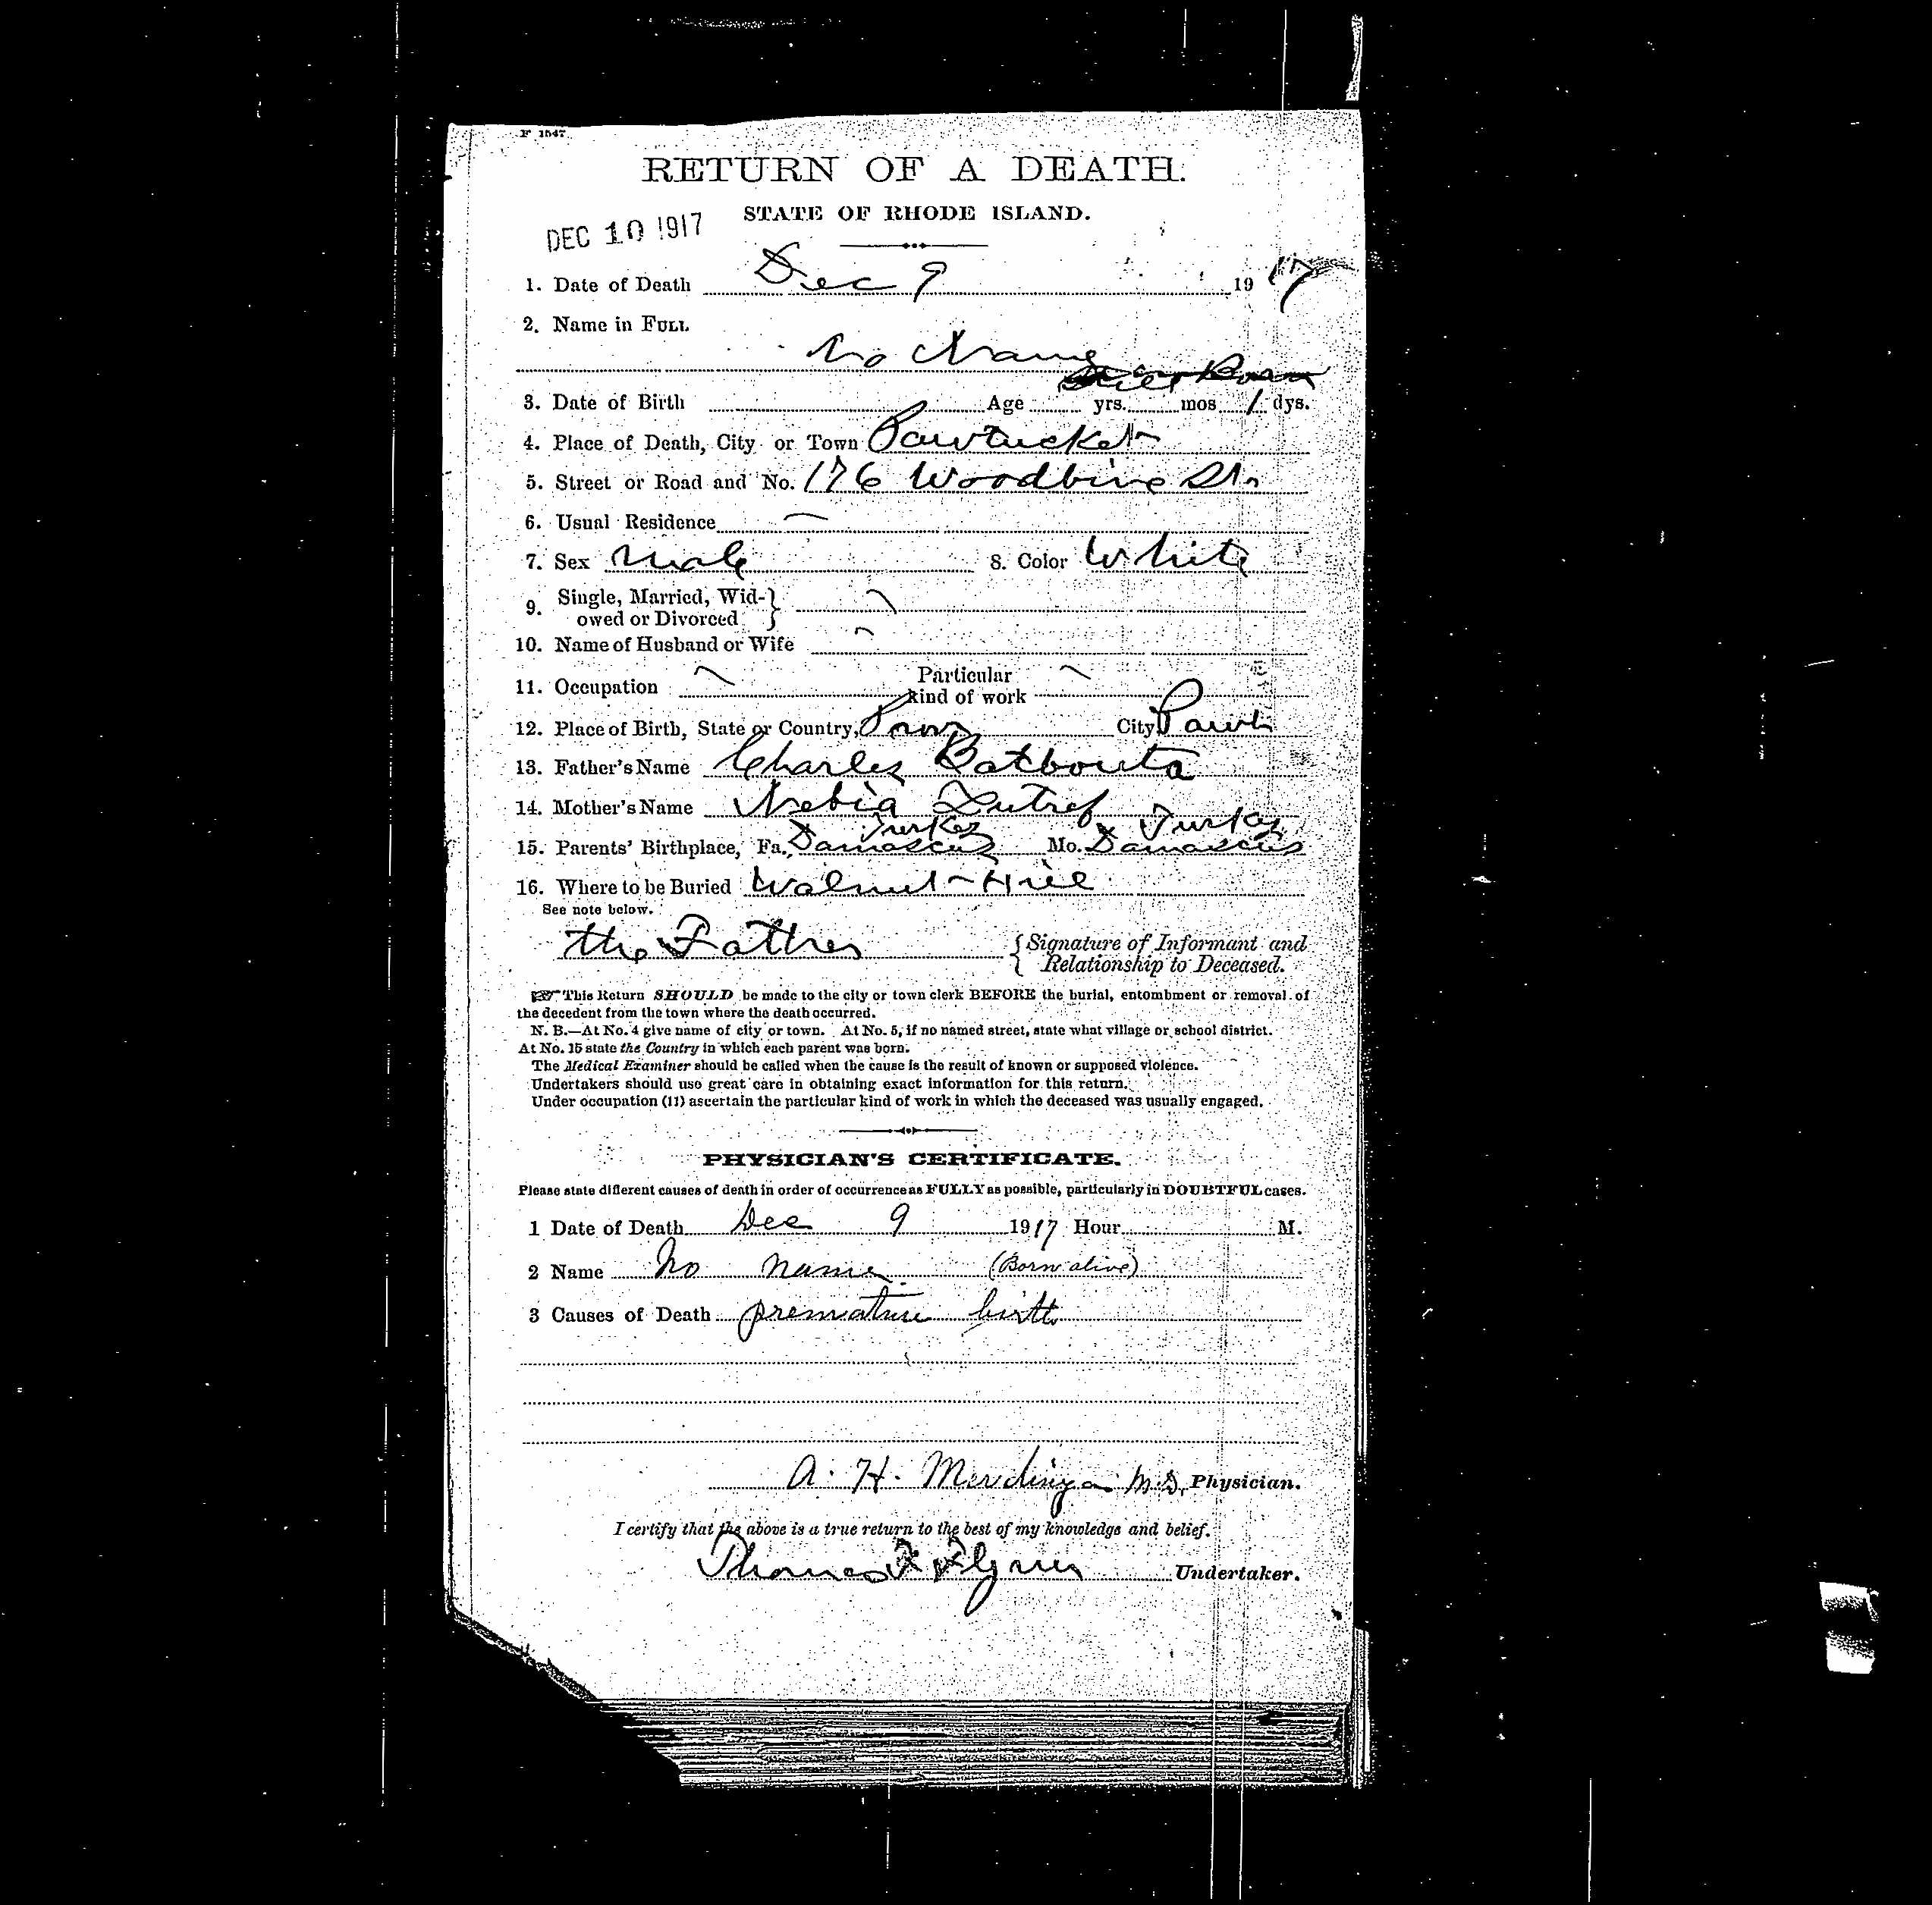 F 1547
RETURN OF A DEATH.
STATE OF RHODE ISLAND.
DEC 10 1917
1. Date of Death Dec 9 1917
2. Name in FULL
No Name
Still Born
3. Date of Birth Age yrs. mos 1 dys.
4. Place of Death, City or Town Pawtucket
5. Street or Road and No. 176 Woodbine St.
6. Usual Residence —
7. Sex Male 8. Color White
9. Single, Married, Wid-
owed or Divorced
10. Name of Husband or Wife
11. Occupation Particular
kind of work
12. Place of Birth, State or Country, City Pawt
13. Father's Name Charles Batbouta
14. Mother's Name Nebia Lutref
Turkey Turkey
15. Parents' Birthplace, Fa. Damascus Mo. Damascus
16. Where to be Buried Walnut Hill
See note below.
the Father {Signature of Informant and
Relationship to Deceased.
☞ This Return SHOULD be made to the city or town clerk BEFORE the burial, entombment or removal of
the decedent from the town where the death occurred.
N. B.—At No. 4 give name of city or town. At No. 5, if no named street, state what village or school district.
At No. 15 state the Country in which each parent was born.
The Medical Examiner should be called when the cause is the result of known or supposed violence.
Undertakers should use great care in obtaining exact information for this return.
Under occupation (11) ascertain the particular kind of work in which the deceased was usually engaged.
PHYSICIAN'S CERTIFICATE.
Please state different causes of death in order of occurrence as FULLY as possible, particularly in DOUBTFUL cases.
1 Date of Death Dec 9 1917 Hour M.
2 Name No name (Born alive)
3 Causes of Death premature birth
A. H. M.D. Physician.
I certify that the above is a true return to the best of my knowledge and belief.
Thomas F Flynn Undertaker.